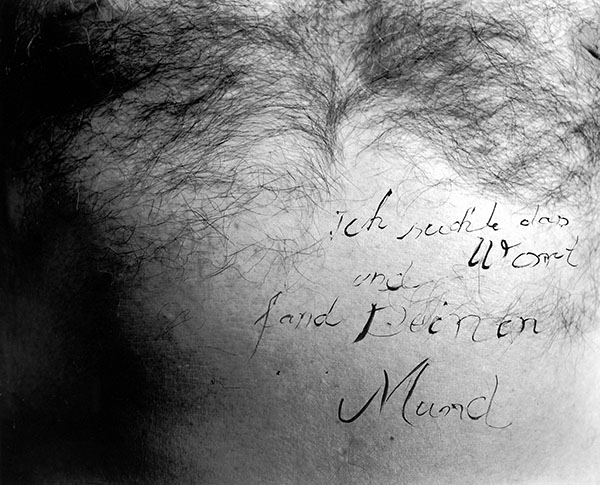 ich suchte das
Wort
und
fand Deinen
Mund